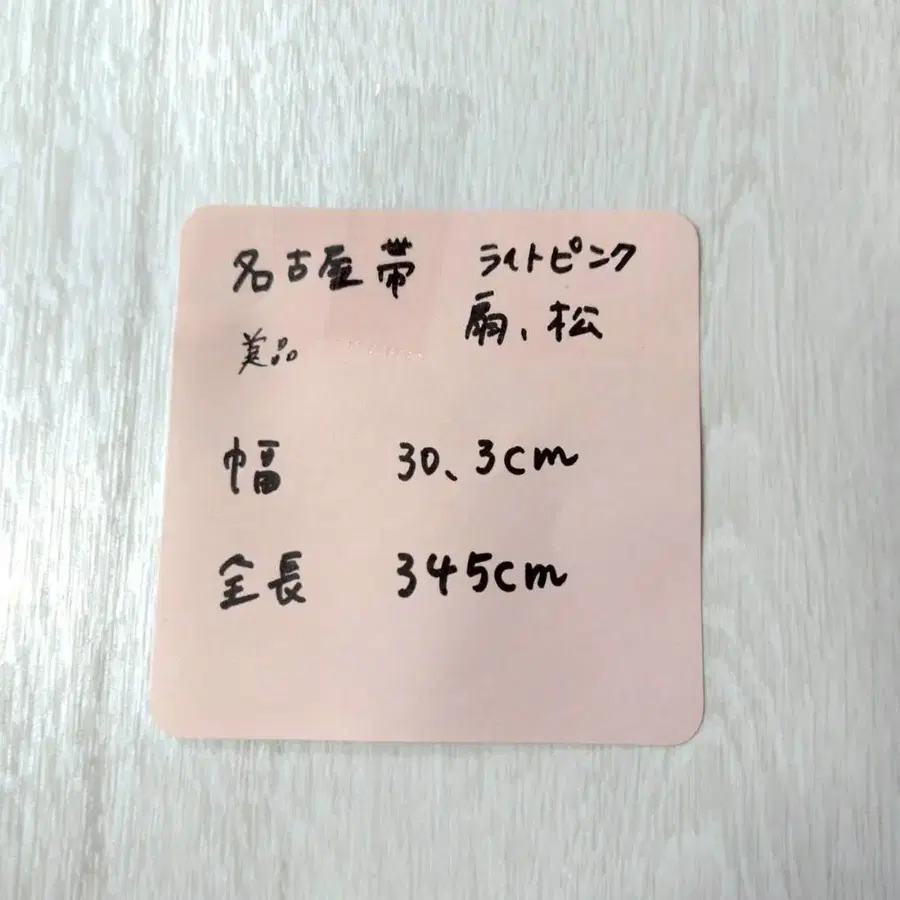 名古屋帯 ライトピンク
扇、松
美品
幅 30、3cm
全長 345cm